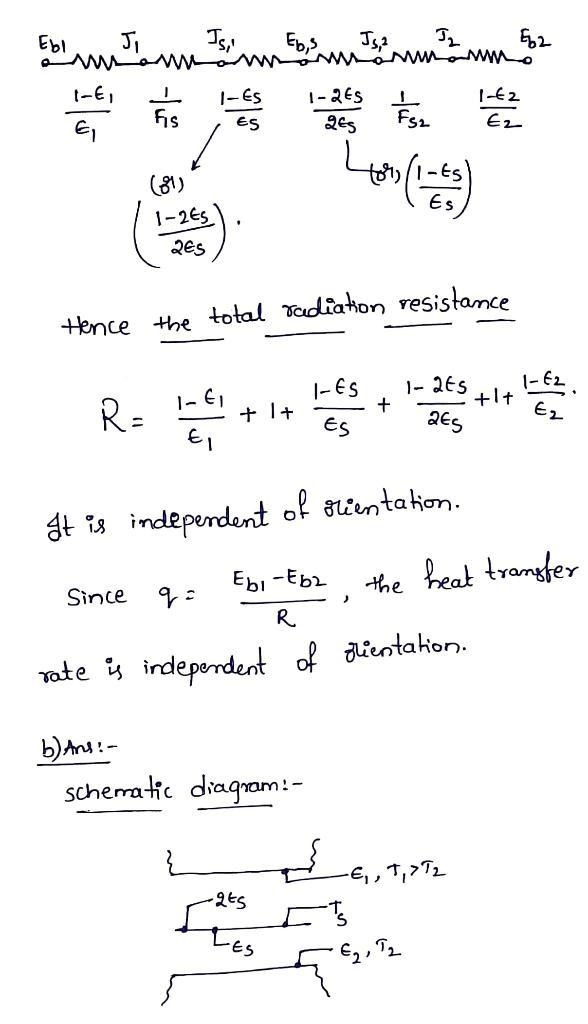 Eb1 J1 Js,1 Eb,s Js,2 J2 Eb2
1-ϵ1/ϵ1 1/F1s 1-ϵs/ϵs 1-2ϵs/2ϵs 1/Fs2 1-ϵ2/ϵ2
(or) (or) (1-ϵs/ϵs)
(1-2ϵs/2ϵs).
Hence the total radiation resistance
R = 1-ϵ1/ϵ1 + 1 + 1-ϵs/ϵs + 1-2ϵs/2ϵs + 1 + 1-ϵ2/ϵ2.
It is independent of orientation.
Since q = Eb1-Eb2/R, the heat transfer
rate is independent of orientation.
b) Ans:-
schematic diagram:-
ϵ1, T1>T2
2ϵs Ts
ϵs ϵ2, T2